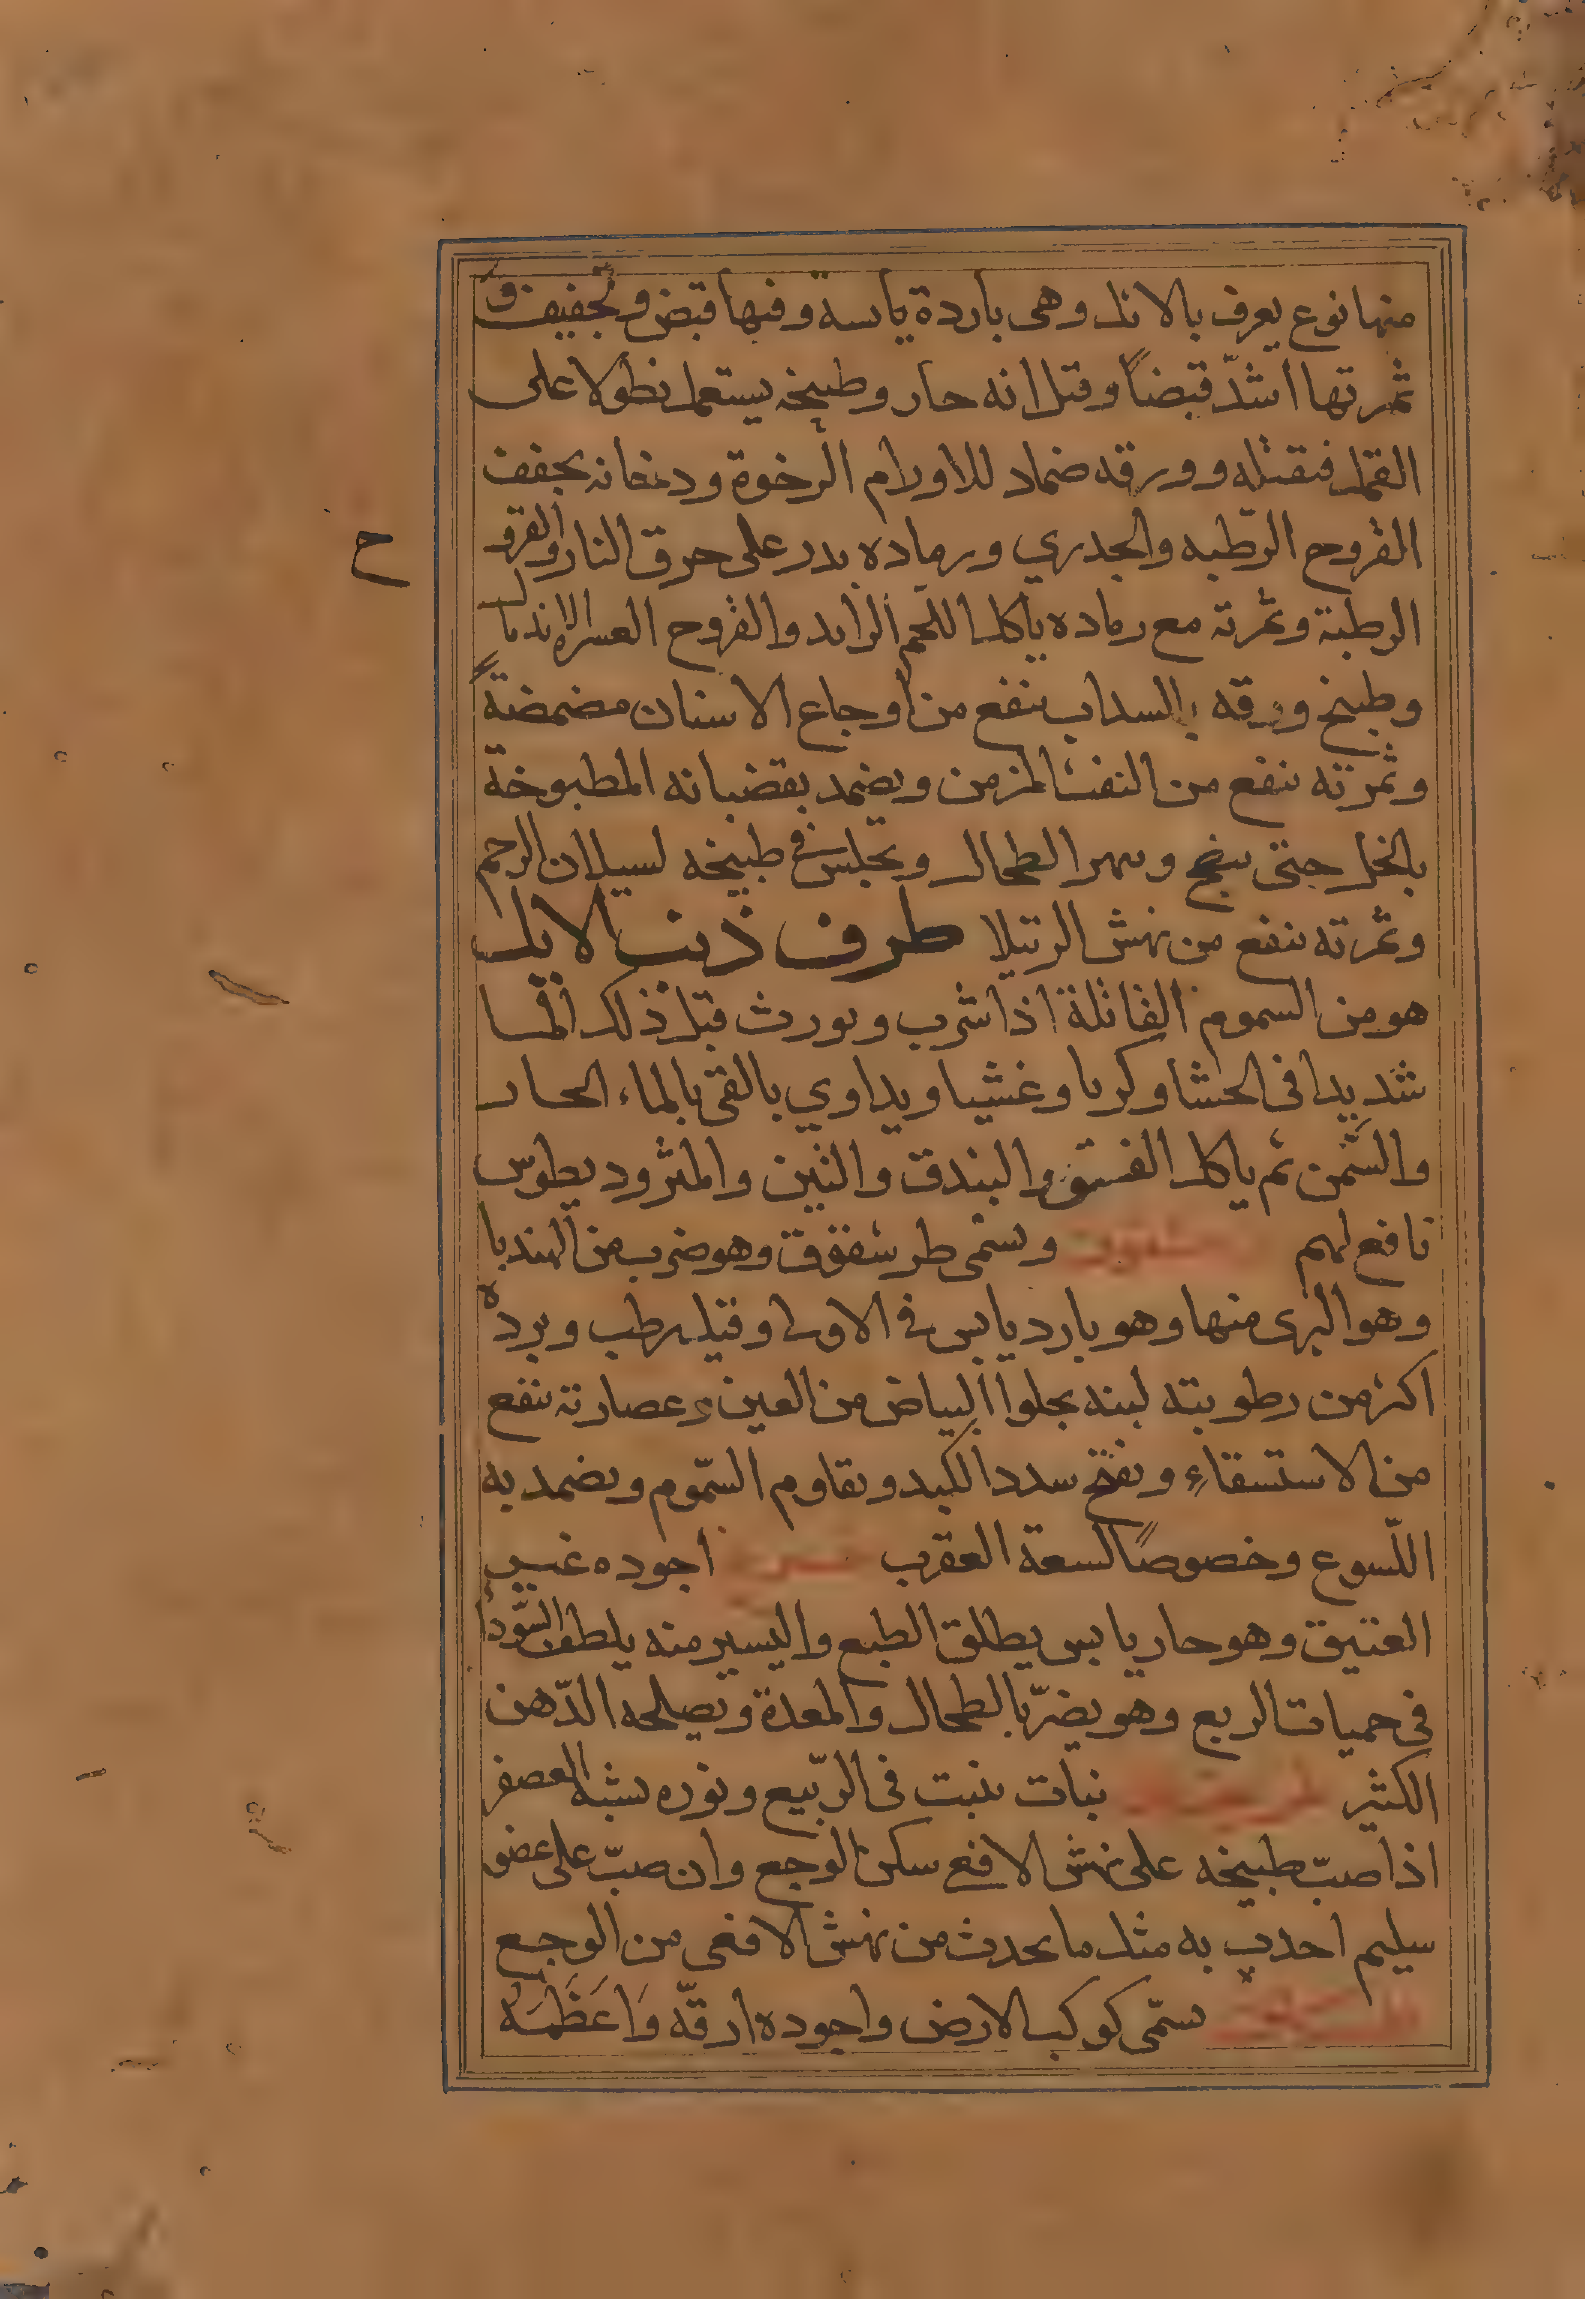 منها نوع يعرف بالاثل وهى باردة يابسة وفيها قبض وتجفيف و
ثمرتها اشدّ قبضاً وقيل انه حار وطبيخه يستعمل نطولا على
القمل فيقتله وورقه ضماد للاورام الرخوة ودخانه يجفف
القروح الرّطبه والجدري ورماده يدر على حرق النار والقرو
ح
الرطبة وثمرته مع رماده ياكل اللّحم الزايد والقروح العسرة الاندمال
وطبيخ ورقه بالسداب ينفع من اوجاع الاسنان مضمضةً
وثمرته ينفع من النفث المزمن ويضمد بقضبانه المطبوخة
بالخل حتى ينضج ويهرا الطحال ويجلس فى طبيخه لسيلان الرحم
وثمرته ينفع من نهش الرتيلا طرف ذنب الايل
هو من السموم القاتلة اذا شرب ويورث قبل ذلك المّا
شديدا فى الحشا وكربا وغشيا ويداوي بالقى بالماء الحار
والسّمن ثم ياكل الفستق والبندق والتين والمثروديطوس
نافع لهم ويسمى طرشقوق وهو ضرب من الهندبا
وهو البرى منها وهو بارد يابس فى الاولى وقيل رطب وبرده
اكثر من رطوبته لبنه يجلوا البياض من العين وعصارته ينفع
من الاستسقاء ويفتح سدد الكبد ويقاوم السّموم ويضمد به
اللّسوع وخصوصًا لسعة العقرب اجوده غير
العتيق وهو حار يابس يطلق الطبع واليسير منه يلطف السّوداء
فى حميات الربع وهو يضرّ بالطحال والمعدة ويصلحه الدّهن
الكثير نبات ينبت فى الربّيع ونوره يشبه العصفر
اذا صبّ طبيخه على نهش الافعى سكن الوجع وان صبّ على عضو
سليم احدث به مثل ما يحدث من نهش الافعى من الوجع
يسمّى كوكب الارض واجوده ارقّه وَاعَظَمَهُ